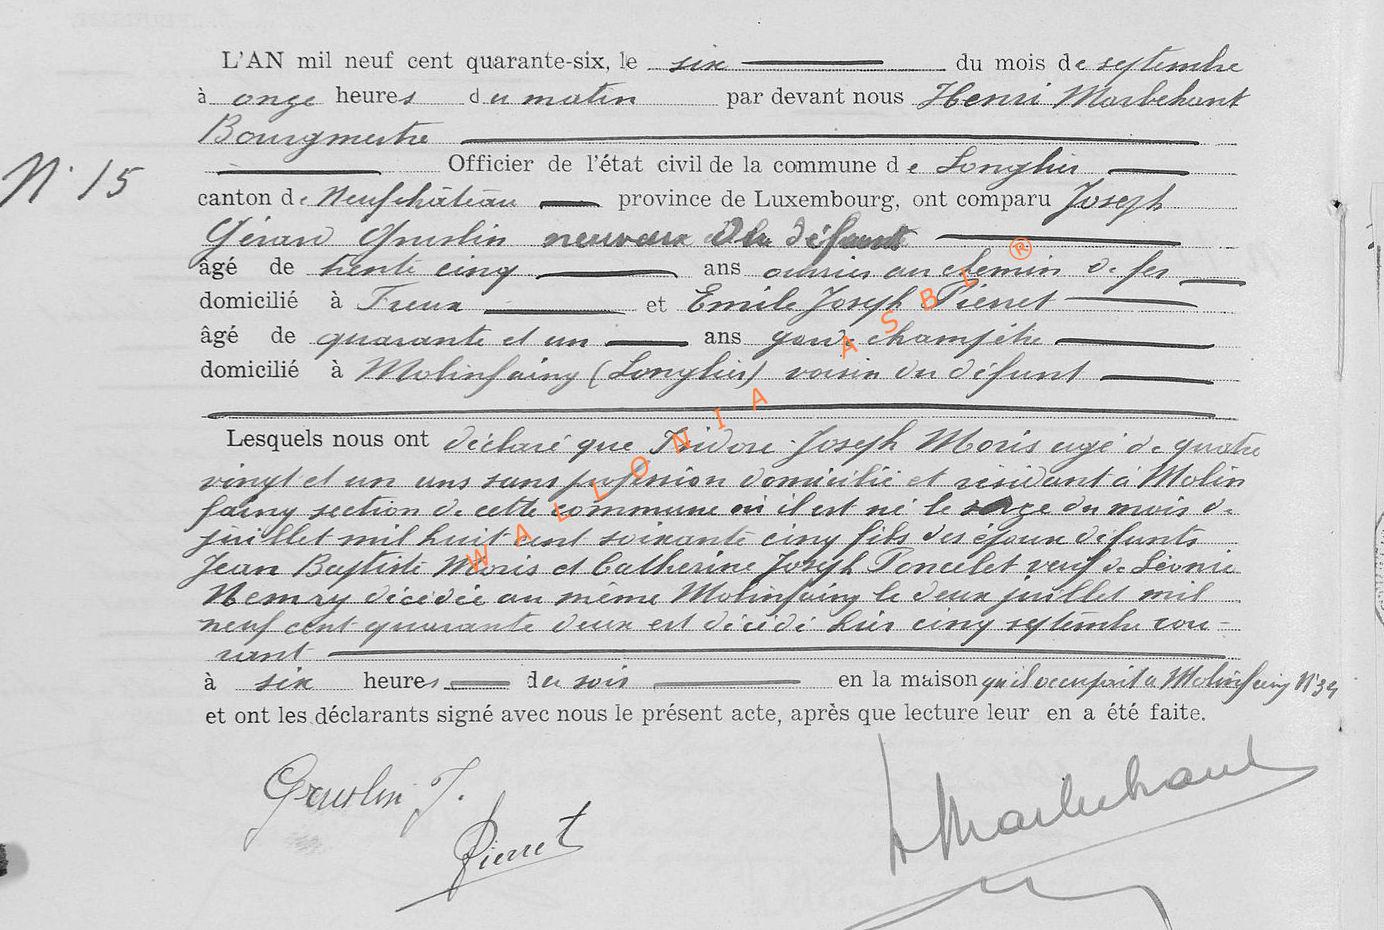 L'AN mil neuf cent quarante-six, le six du mois de septembre
à onze heures du matin par devant nous Henri Marbehant
Bourgmestre
N° 15
Officier de l'état civil de la commune de Longlier
canton de Neufchâteau province de Luxembourg, ont comparu Joseph
Gérard Gruslin neuveux du défunt
âgé de trente cinq ans ouvrier au chemin de fer
domicilié à Freux et Emile Joseph Pierret
âgé de quarante et un ans garde champêtre
domicilié à Molinfaing (Longlier) voisin du défunt
Lesquels nous ont déclaré que Isidore Joseph Moris agé de quatre
vingt et un ans sans profession domicilié et résidant à Molin
faing section de cette commune où il est né le du mois de
juillet mil huit cent soixante cinq fils des époux défunts
Jean Baptiste Moris et Catherine Joseph Poncelet veuf de Léonie
Nemry décédée au même Molinfaing le deux juillet mil
neuf cent quarante deux est décédé hier cinq septembre cou-
rant
à six heures du soir en la maison qu'il occupait à Molinfaing N°34
et ont les déclarants signé avec nous le présent acte, après que lecture leur en a été faite.
Gruslin J.
Pierret
H Marbehant
WALLONIA ASBL ®